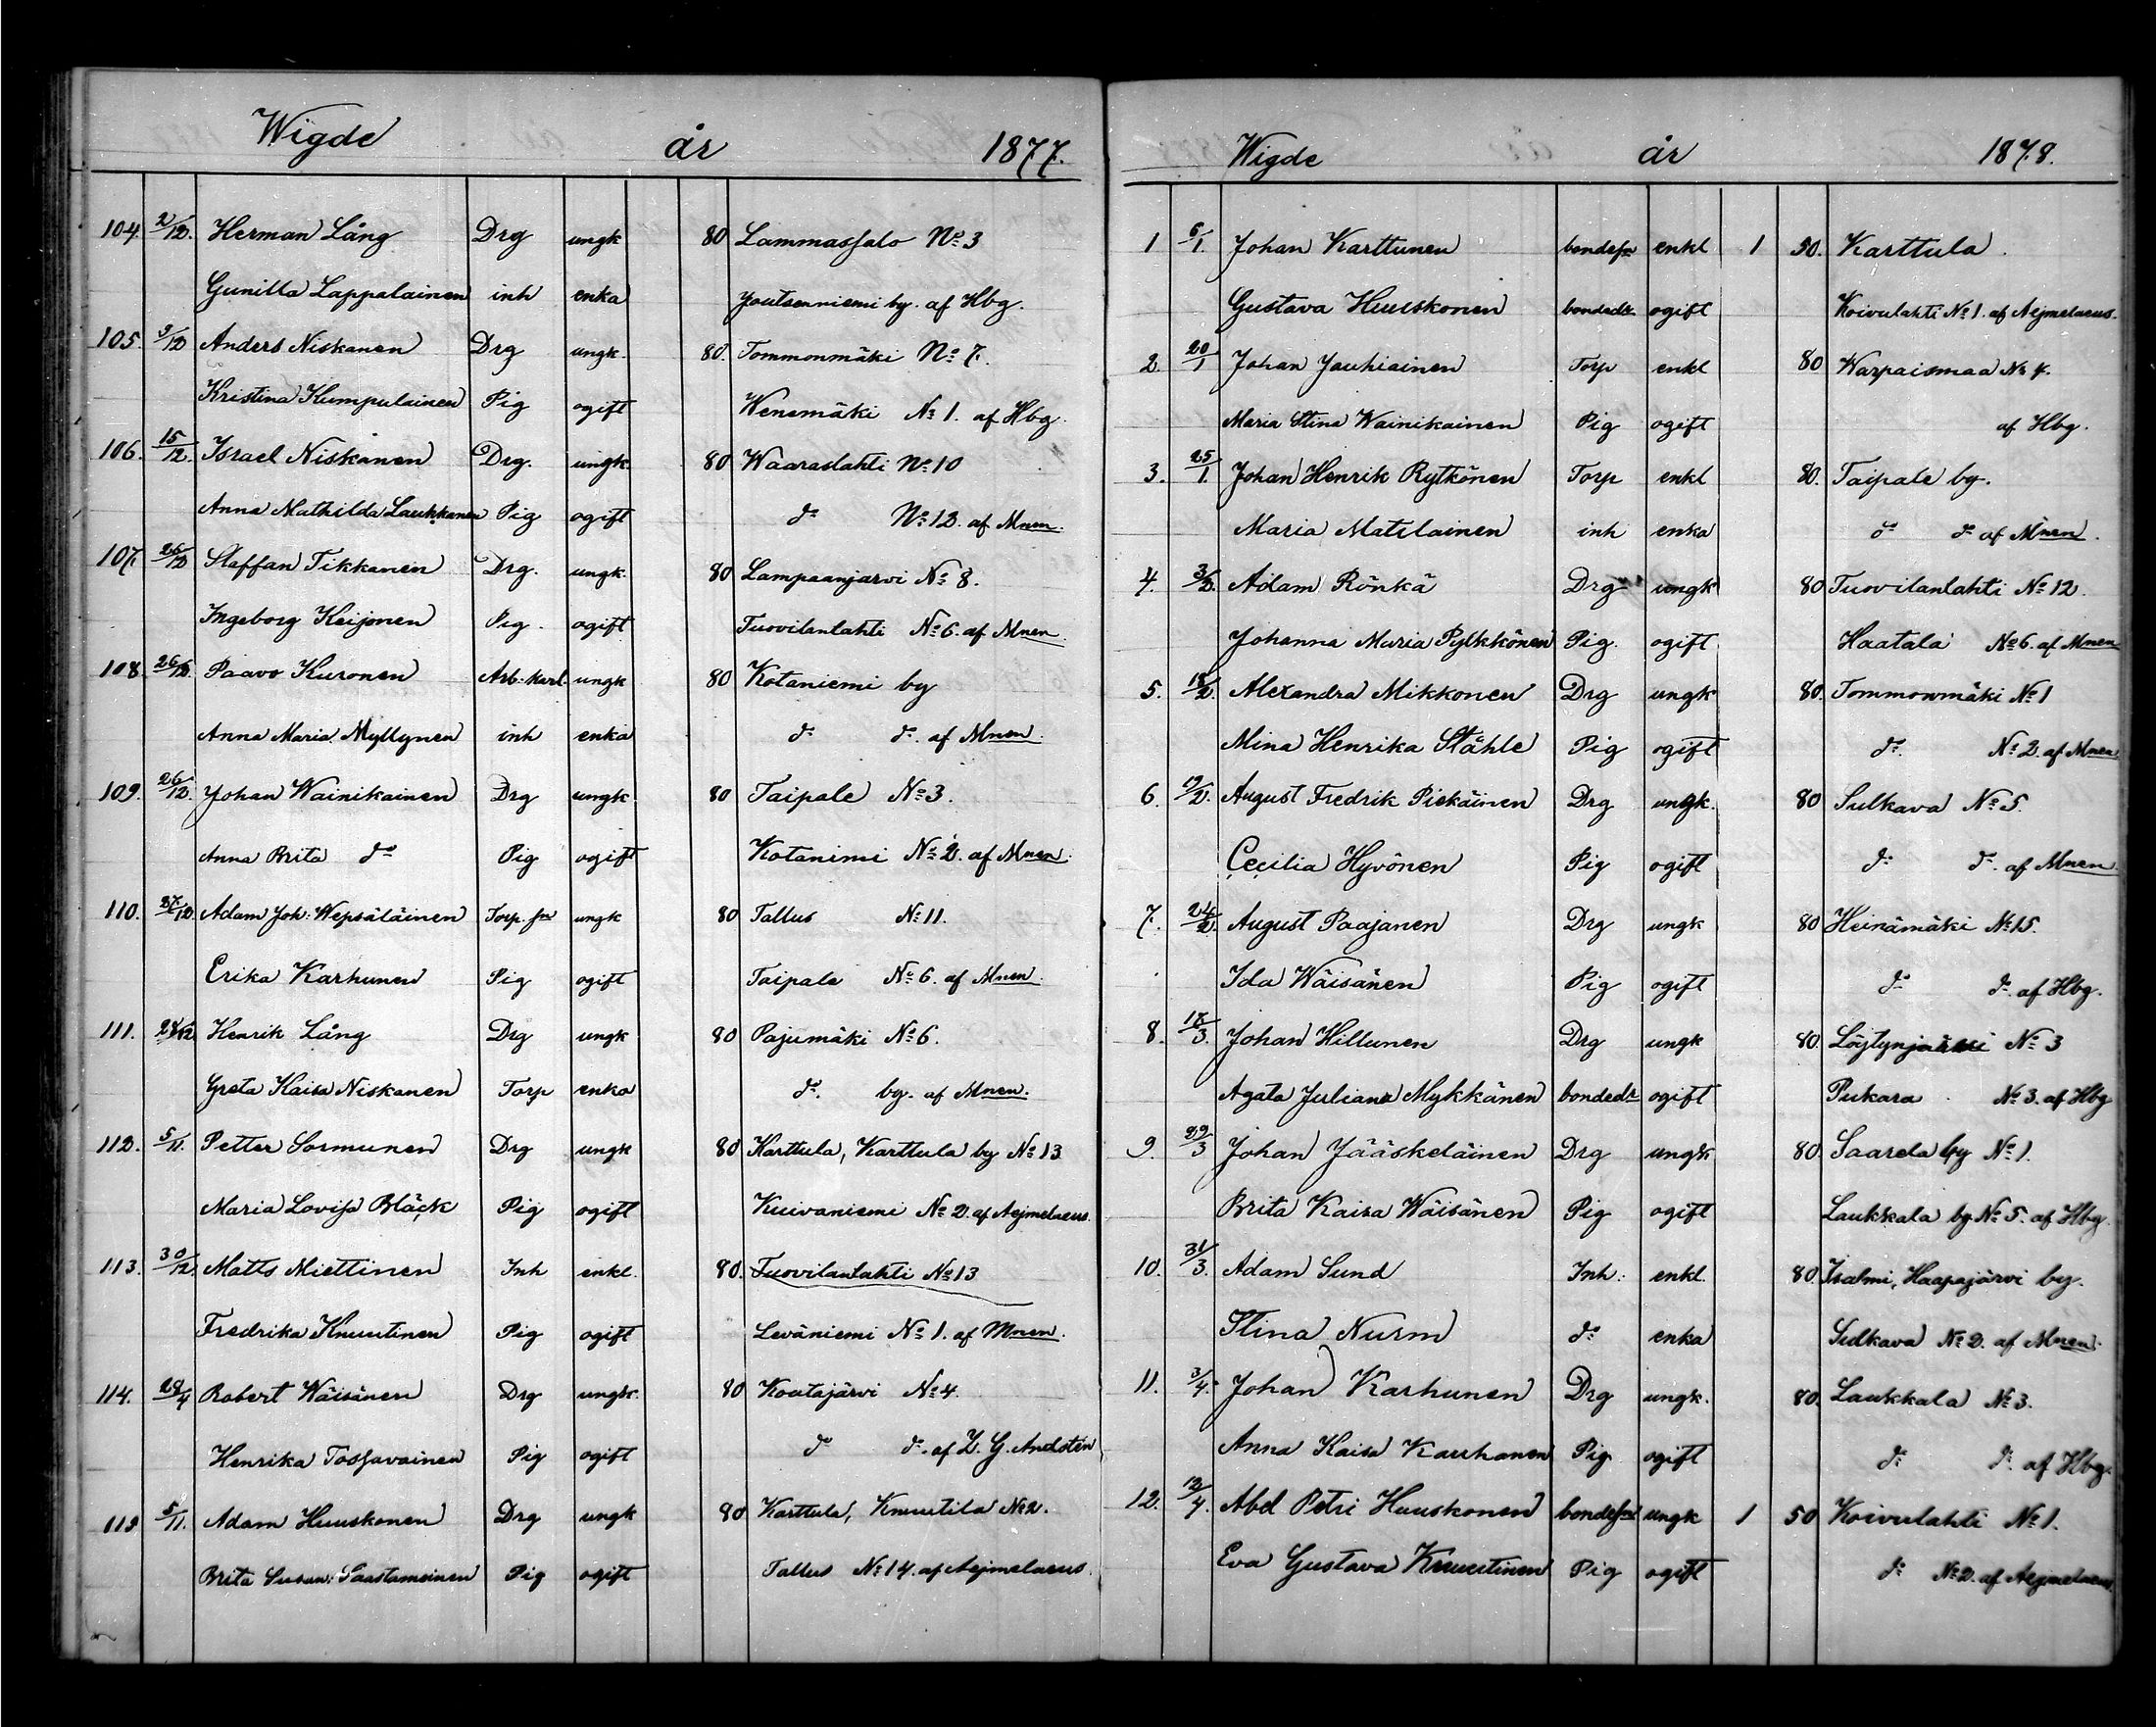 Wigde år 1877.
104. 2/12. Herman Lång Drg ungk 80 Lammassalo No 3
Gunilla Lappalainen inh enka Joutsenniemi by. af Hbg.
105. 9/12 Anders Niskanen Drg ungk. 80. Tommonmäki No 7.
Kristina Humpulainen Pig ogift Wenemäki No 1. af Hbg.
106. 15/12. Israel Niskanen Drg. ungk. 80 Waaraslahti No 10
Anna Mathilda Laukkanen Pig ogift do No 12. af Mnen.
107. 26/12 Staffan Tikkanen Drg. ungk. 80 Lampaanjarvi No 8.
Ingeborg Keijonen Pig. ogift Tuovilanlahti No 6. af Mnen.
108. 26/12. Paavo Kuronen Arb: karl ungk 80 Kotaniemi by
Anna Maria Myllynen inh enka do do. af Mnen.
109. 26/12. Johan Wainikainen Drg ungk 80 Taipale No 3.
Anna Brita do Pig ogift Kotanimi No 2. af Mnen.
110. 27/12. Adam Joh: Wepsäläinen Torp. son ungk 80 Tallus No 11.
Erika Karhunen Pig ogift Taipale No 6. af Mnen.
111. 28/12 Henrik Lång Drg ungk 80 Pajumäki No 6.
Greta Kaisa Niskanen Torp enka do. by. af Mnen.
112. 5/11. Petter Sormunen Drg ungk 80 Karttula, Karttula by No 13
Maria Lovisa Bläck Pig ogift Kuivaniemi No 2. af Aejmelaeus.
113. 30/12. Matts Miettinen Inh enkl. 80. Tuovilanlahti No 13
Fredrika Knuutinen Pig ogift Leväniemi No 1. af Mnen.
114. 28/4 Robert Wäisänen Drg ungk. 80 Koutajärvi No 4.
Henrika Tossavainen Pig ogift do do. af Z. G. Andstén
115 5/11. Adam Huuskonen Drg ungk 80 Karttula, Knuutila No 2.
Brita Susan: Saastamoinen Pig ogift Tallus No 14. af Aejmelaeus.
Wigde år 1878.
1 6/1. Johan Karttunen bondeson enkl 1 50. Karttula.
Gustava Huuskonen bondedtr ogift Koivulahti No 1. af Aejmelaeus.
2. 20/1 Johan Jauhiainen Torp enkl 80 Warpaismaa No 4.
Maria Stina Wainikainen Pig ogift af Hbg.
3. 25/1. Johan Henrik Rytkönen Torp enkl 80. Taipale by.
Maria Matilainen inh enka do do af Mnen.
4. 3/2. Adam Rönkä Drg ungk 80 Tuovilanlahti No 12.
Johanna Maria Pylkkönen Pig. ogift Haatala No 6. af Mnen
5. 18/2. Alexandra Mikkonen Drg ungk 80. Tommonmäki No 1
Mina Henrika Ståhle Pig ogift do. No 2. af Mnen.
6. 19/2. August Fredrik Piekäinen Drg ungk. 80 Sulkava No 5.
Cecilia Hyvönen Pig ogift do do. af Mnen.
7. 24/2. August Paajanen Drg ungk 80 Heinämäki No 15.
Ida Wäisänen Pig ogift do do. af Hbg.
8. 18/3. Johan Hillunen Drg ungk 80. Löytynjärvi No 3
Agata Juliana Mykkänen bondedtr ogift Pukara No 3. af Hbg
9. 29/3 Johan Jääskeläinen Drg ungk 80. Saarela by No 1.
Brita Kaisa Wäisänen Pig ogift Laukkala by No 5. af Hbg.
10. 31/3. Adam Sund Inh: enkl. 80. Isalmi, Haapajärvi by.
Stina Nurm do enka Sulkava No 2. af Mnen.
11. 3/4. Johan Karhunen Drg ungk. 80. Laukkala No 3.
Anna Kaisa Kauhanen Pig ogift do do. af Hbg.
12. 12/4. Abel Petri Huuskonen bondeson ungk 1 50 Koivulahti No 1.
Eva Gustava Knuutinen Pig ogift do No 2. af Aejmelaeus.